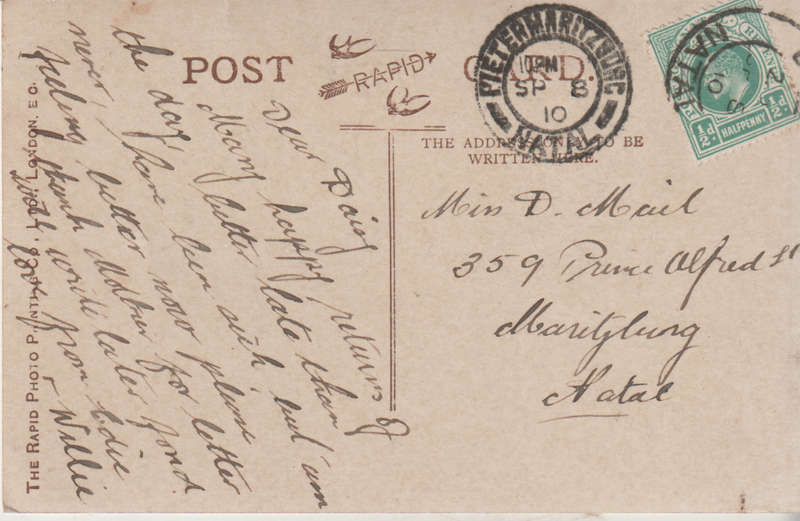 POST CARD.
RAPID
PIETERMARITZBURG
10 PM
SP 8
10
NATAL
NATAL
½d. HALFPENNY ½d.
THE ADDRESS ONLY TO BE
WRITTEN HERE.
Dear Daisy
Many happy returns of
the day better late than
never, have been sick but am
feeling better now please
thank Mother for letter
will write later fond
love from Edie
& Willie
Miss D. Mail
359 Prince Alfred St
Maritzburg
Natal
THE RAPID PHOTO PRINTING CO., LTD., LONDON, E.C.